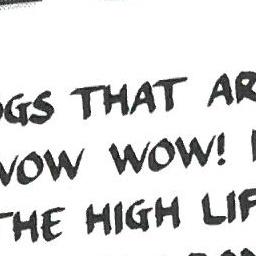 OGS THAT AR
WOW WOW!
THE HIGH LIF